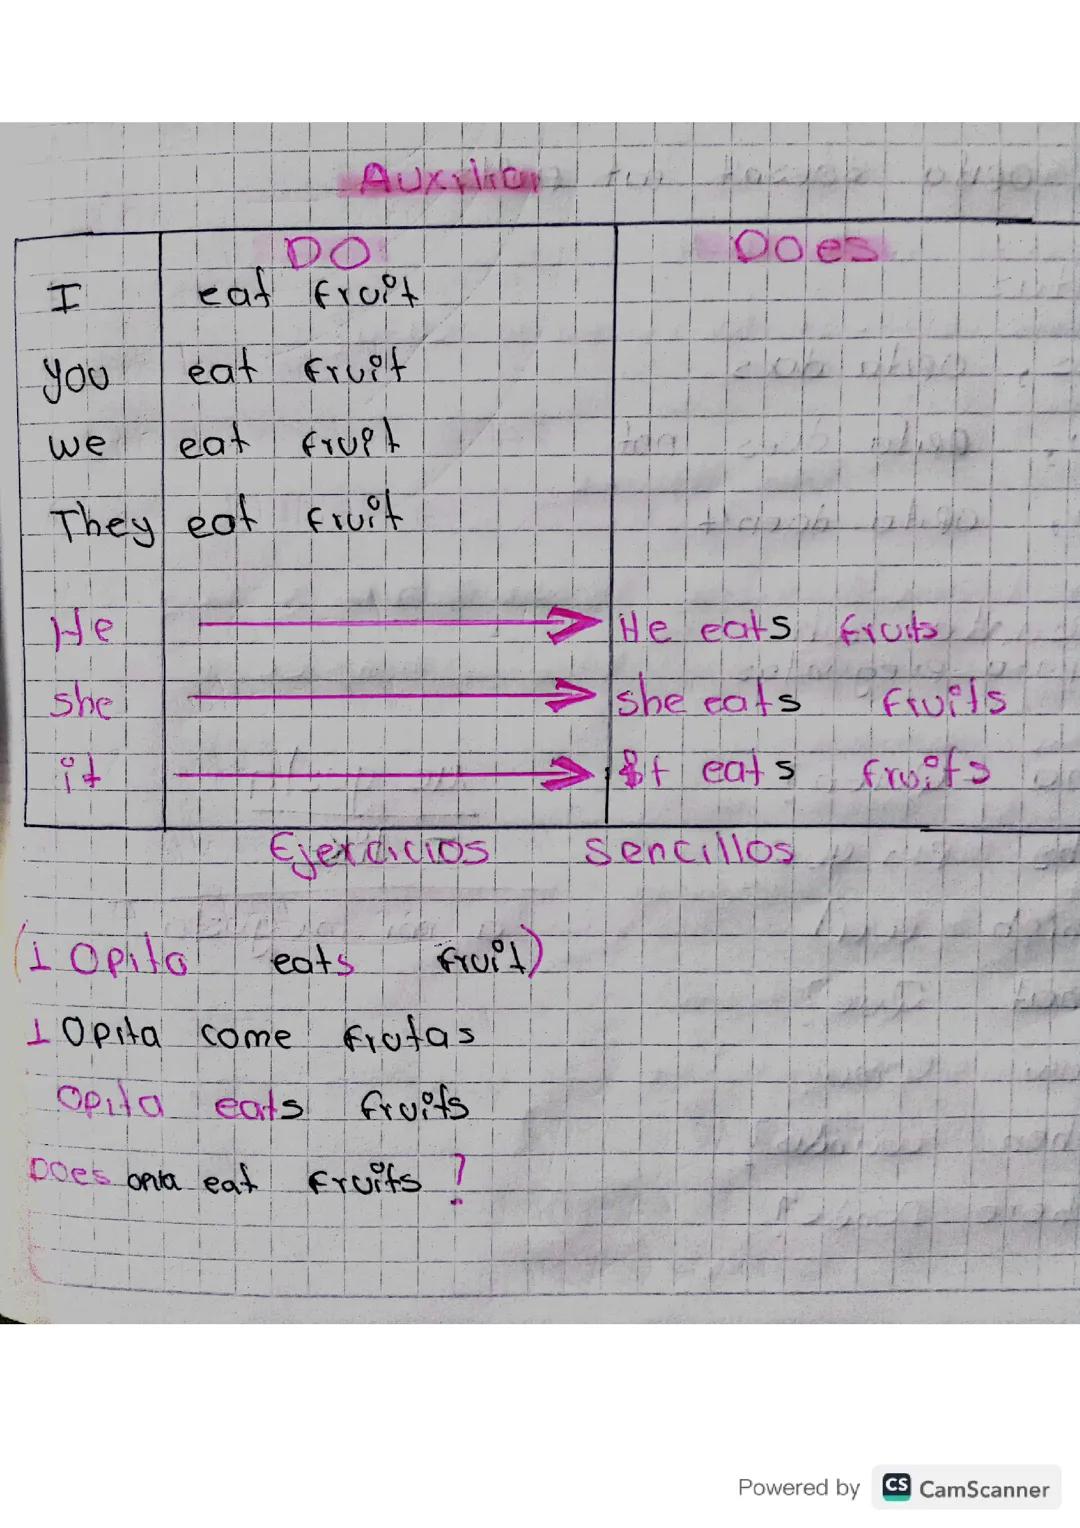 Auxiliar
DO Does
I eat fruit
you eat fruit
we eat fruit
They eat fruit
He He eats fruits
she she eats fruits
it It eats fruits
Ejercicios sencillos
(1 Opita eats fruit)
1 Opita come frutas
Opita eats fruits
DOes opita eat fruits ?
Powered by CS CamScanner